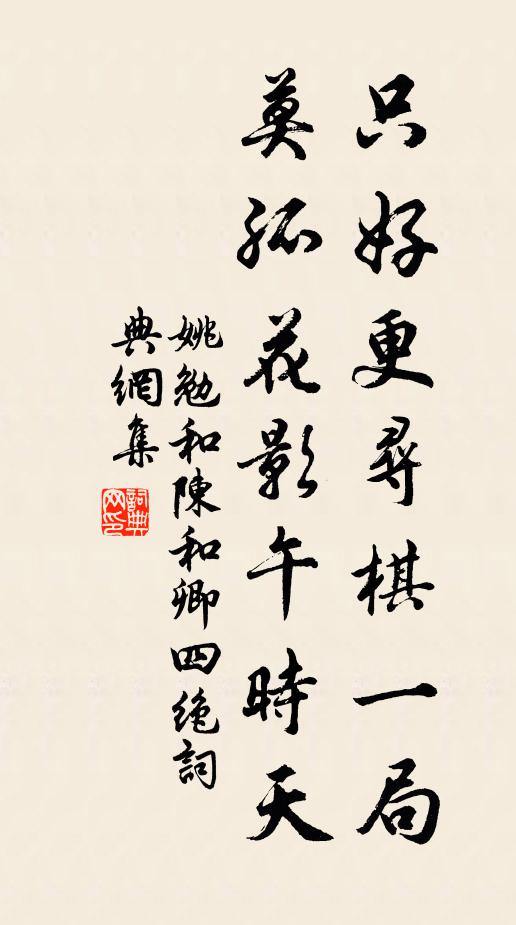 只好更尋棋一局
莫孤花影午時天
姚勉和陳和卿四絶詞
典網集
詞典
网印